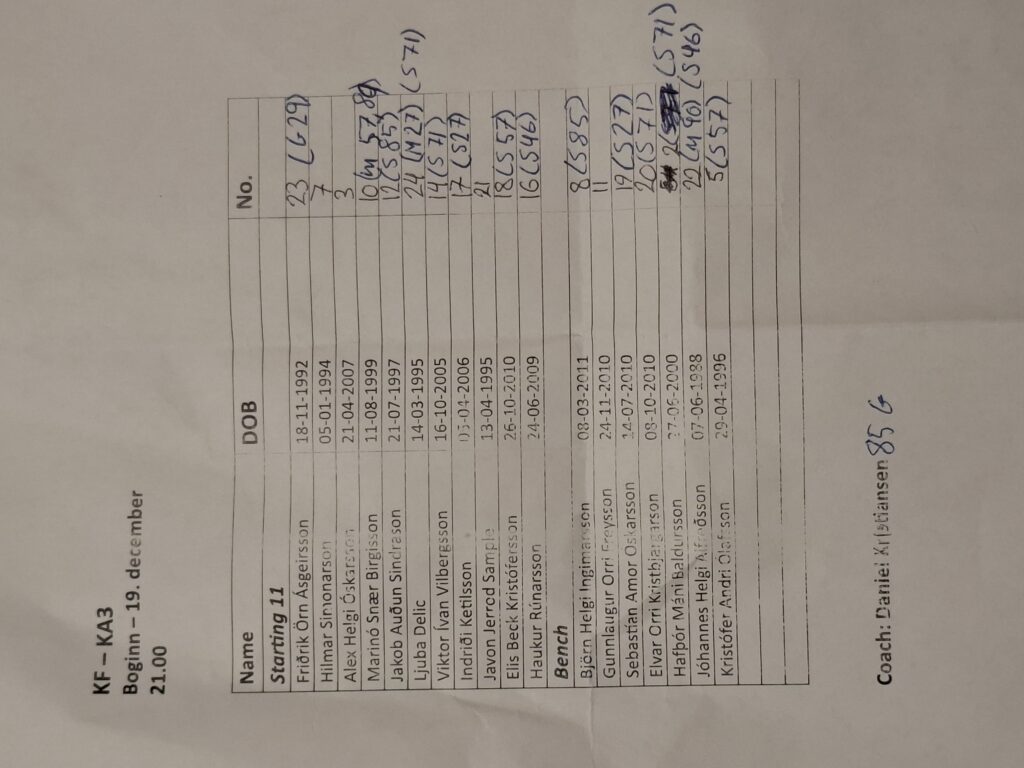 KF – KA3
Boginn – 19. december
21.00
Name DOB No.
Starting 11
Friðrik Örn Ásgeirsson 18-11-1992 23 (G29)
Hilmar Símonarson 05-01-1994 7
Alex Helgi Óskarsson 21-04-2007 3
Marinó Snær Birgisson 11-08-1999 10 (M 57,89)
Jakob Auðun Sindrason 21-07-1997 12 (S85)
Ljuba Delic 14-03-1995 24 (M27) (S71)
Viktor Ivan Vilbergsson 16-10-2005 14 (S71)
Indriði Ketilsson 05-04-2006 17 (S27)
Javon Jerrod Sample 13-04-1995 21
Elis Beck Kristófersson 26-10-2010 18 (S57)
Haukur Rúnarsson 24-06-2009 16 (S46)
Bench
Björn Helgi Ingimarsson 08-03-2011 8 (S85)
Gunnlaugur Orri Freysson 24-11-2010 11
Sebastían Amor Óskarsson 14-07-2010 19 (S27)
Elvar Orri Kristbjargarson 08-10-2010 20 (S71)
Hafþór Máni Baldursson 27-06-2000 2 (S71)
Jóhannes Helgi Alfreðsson 07-06-1988 22 (M 90) (S46)
Kristófer Andri Ólafsson 29-04-1996 5 (S57)
Coach: Daniel Kristiansen 85 G